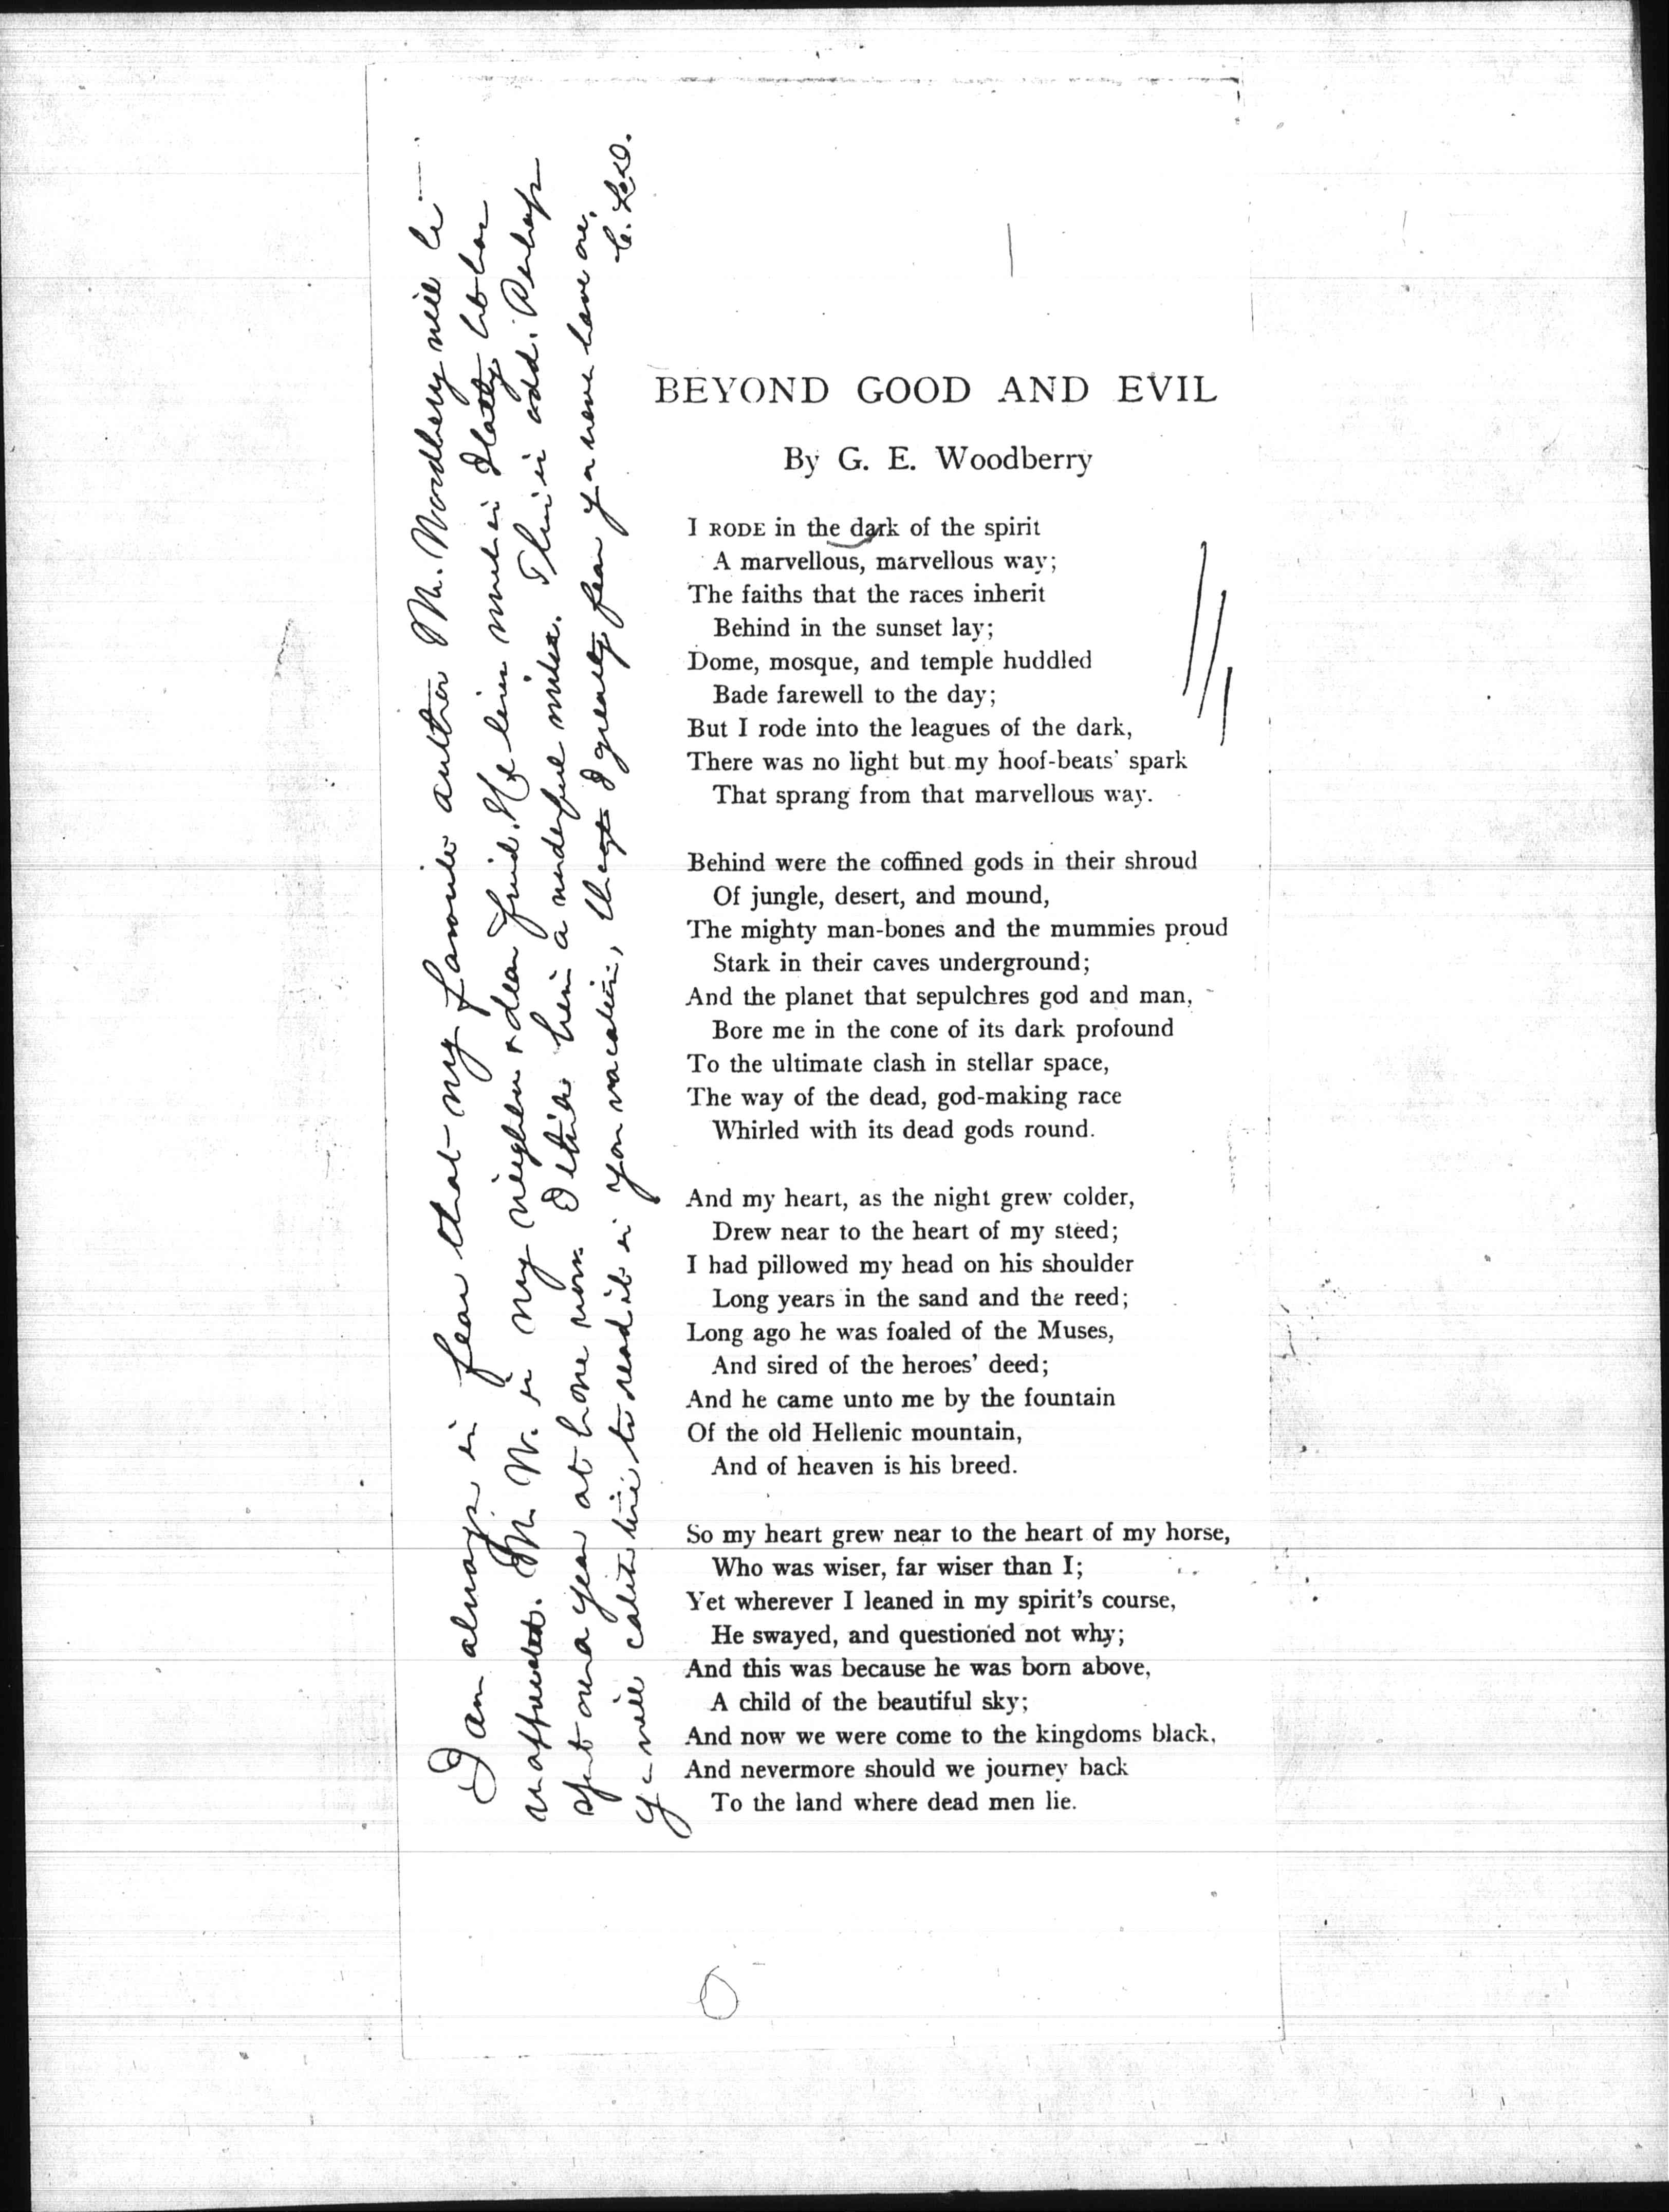 I am always in fear that my favourite author Mr. Woodberry will be
unappreciated. Mr. W. is my neighbor & dear friend. He lives much in Italy but has
spent one a year at home now. I think him a wonderful writer. This is odd. Perhaps
you will catch time to read it in your vacation, though I greatly fear you never have one.
BEYOND GOOD AND EVIL
By G. E. Woodberry
I RODE in the dark of the spirit
A marvellous, marvellous way;
The faiths that the races inherit
Behind in the sunset lay;
Dome, mosque, and temple huddled
Bade farewell to the day;
But I rode into the leagues of the dark,
There was no light but my hoof-beats' spark
That sprang from that marvellous way.
Behind were the coffined gods in their shroud
Of jungle, desert, and mound,
The mighty man-bones and the mummies proud
Stark in their caves underground;
And the planet that sepulchres god and man,
Bore me in the cone of its dark profound
To the ultimate clash in stellar space,
The way of the dead, god-making race
Whirled with its dead gods round.
And my heart, as the night grew colder,
Drew near to the heart of my steed;
I had pillowed my head on his shoulder
Long years in the sand and the reed;
Long ago he was foaled of the Muses,
And sired of the heroes' deed;
And he came unto me by the fountain
Of the old Hellenic mountain,
And of heaven is his breed.
So my heart grew near to the heart of my horse,
Who was wiser, far wiser than I;
Yet wherever I leaned in my spirit's course,
He swayed, and questioned not why;
And this was because he was born above,
A child of the beautiful sky;
And now we were come to the kingdoms black,
And nevermore should we journey back
To the land where dead men lie.